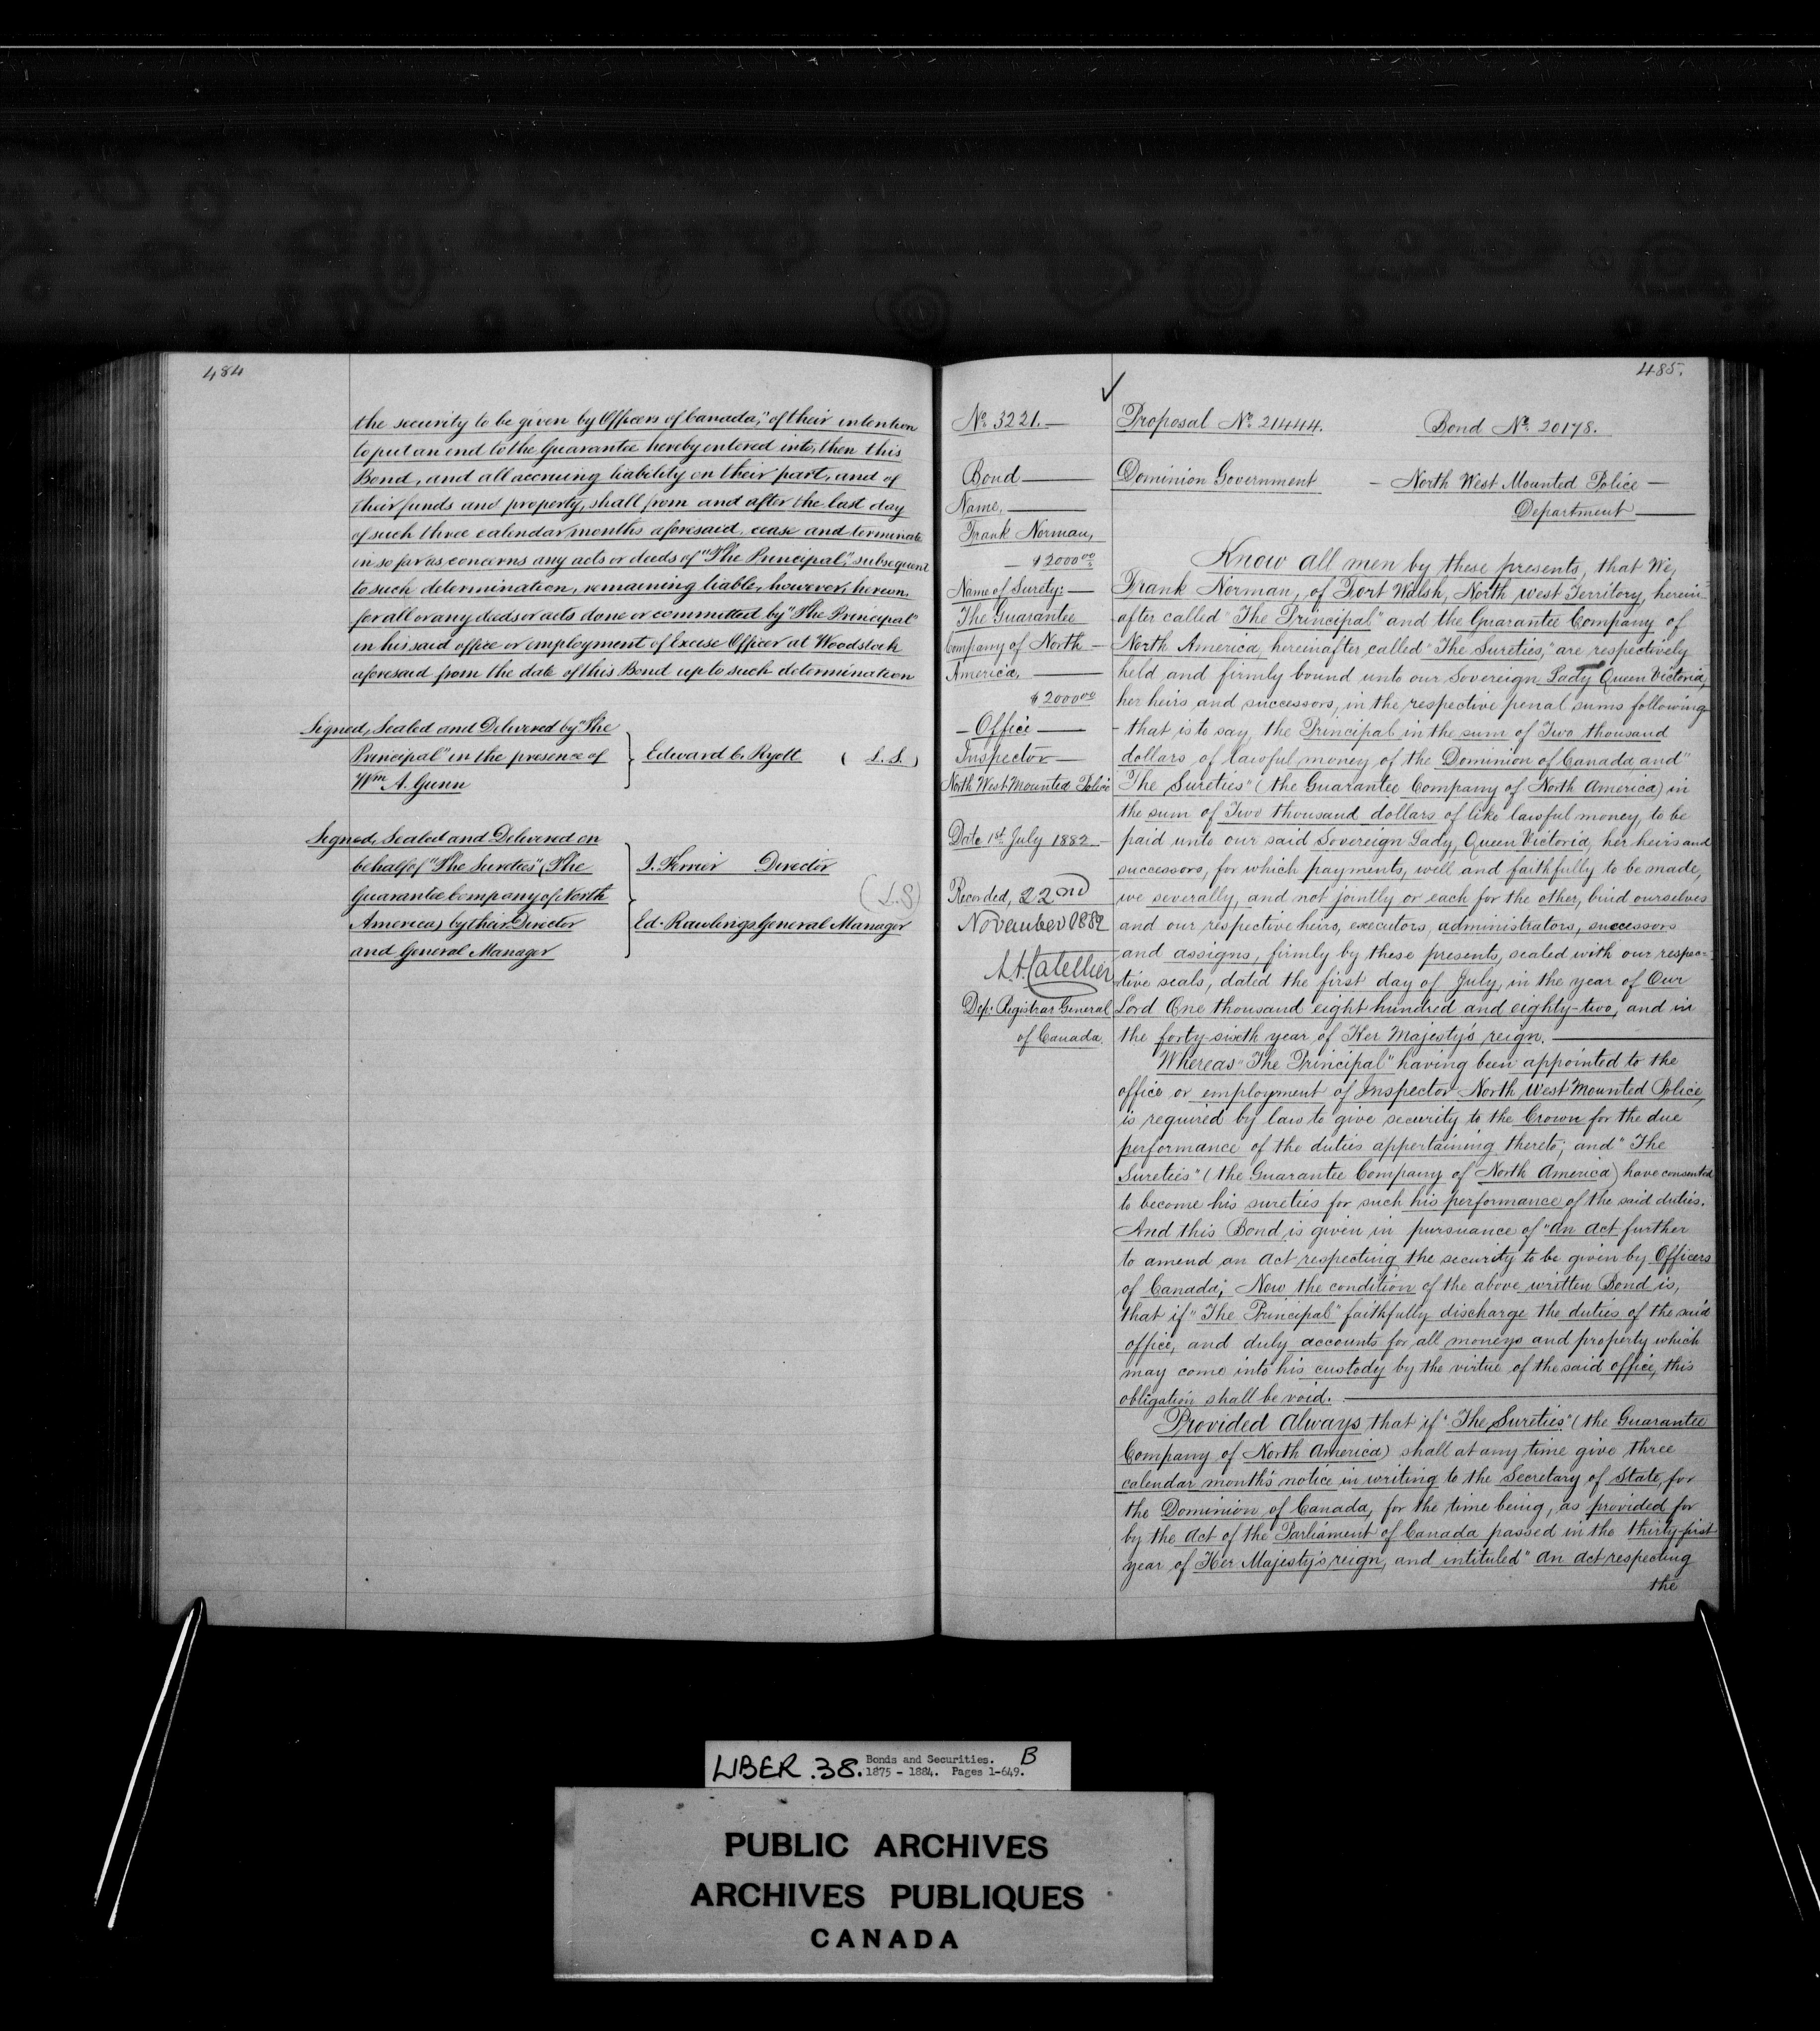 484
the security to be given by Officers of Canada," of their intention
to put an end to the Guarantee hereby entered into, then this
Bond, and all accruing liability on their part, and of
their funds and property, shall from and after the last day
of such three calendar months aforesaid, cease and terminate
in so far as concerns any acts or deeds of "The Principal," subsequent
to such determination, remaining liable, however, hereon,
for all or any deeds or acts done or committed by "The Principal"
in his said office or employment of Excise Officer at Woodstock
aforesaid from the date of this Bond up to such determination
Signed, Sealed and Delivered by "The
Principal" in the presence of
Wm A. Gunn
Edward C. Ryott ( L. S. )
Signed, Sealed and Delivered on
behalf of "The Sureties" (The
Guarantee Company of North
America) by their Director
and General Manager
J. Ferrier Director
(L.S)
Ed. Rawlings General Manager
485.
No. 3221.
Bond
Name,
Frank Norman,
$2000.00
Name of Surety:
The Guarantee
Company of North
America,
$2000.00
Office
Inspector
North West Mounted Police
Date 1st July 1882
Recorded, 22nd
November 1882
L. A. Catellier
Dep: Registrar General
of Canada.
Proposal No. 21444. Bond No. 20178.
Dominion Government - North West Mounted Police -
Department
Know all men by these presents, that We,
Frank Norman, of Fort Walsh, North West Territory, herein-
after called "The Principal" and the Guarantee Company of
North America, hereinafter called "The Sureties," are respectively
held and firmly bound unto our Sovereign Lady Queen Victoria,
her heirs and successors, in the respective penal sums following
- that is to say, the Principal in the sum of Two thousand
dollars of lawful money of the Dominion of Canada, and "
The Sureties" (the Guarantee Company of North America) in
the sum of Two thousand dollars of like lawful money, to be
paid unto our said Sovereign Lady, Queen Victoria, her heirs and
successors, for which payments, well and faithfully to be made,
we severally, and not jointly or each for the other, bind ourselves
and our respective heirs, executors, administrators, successors
and assigns, firmly by these presents, sealed with our respec=
tive seals, dated the first day of July, in the year of Our
Lord One thousand eight hundred and eighty-two, and in
the forty-sixth year of Her Majesty's reign.
Whereas "The Principal" having been appointed to the
office or employment of Inspector North West Mounted Police,
is required by law to give security to the Crown for the due
performance of the duties appertaining thereto; and "The
Sureties" (the Guarantee Company of North America) have consented
to become his sureties for such his performance of the said duties.
And this Bond is given in pursuance of "An Act further
to amend an Act respecting the security to be given by Officers
of Canada; Now the condition of the above written Bond is,
that if "The Principal" faithfully discharge the duties of the said
office, and duly accounts for all moneys and property which
may come into his custody by the virtue of the said office, this
obligation shall be void.
Provided Always that if "The Sureties" (the Guarantee
Company of North America) shall at any time give three
calendar month's notice in writing to the Secretary of State, for
the Dominion of Canada, for the time being, as provided for
by the Act of the Parliament of Canada passed in the thirty-first
year of Her Majesty's reign, and intituled "An Act respecting
the
LIBER .38. Bonds and Securities. B
1875 - 1884. Pages 1-649.
PUBLIC ARCHIVES
ARCHIVES PUBLIQUES
CANADA